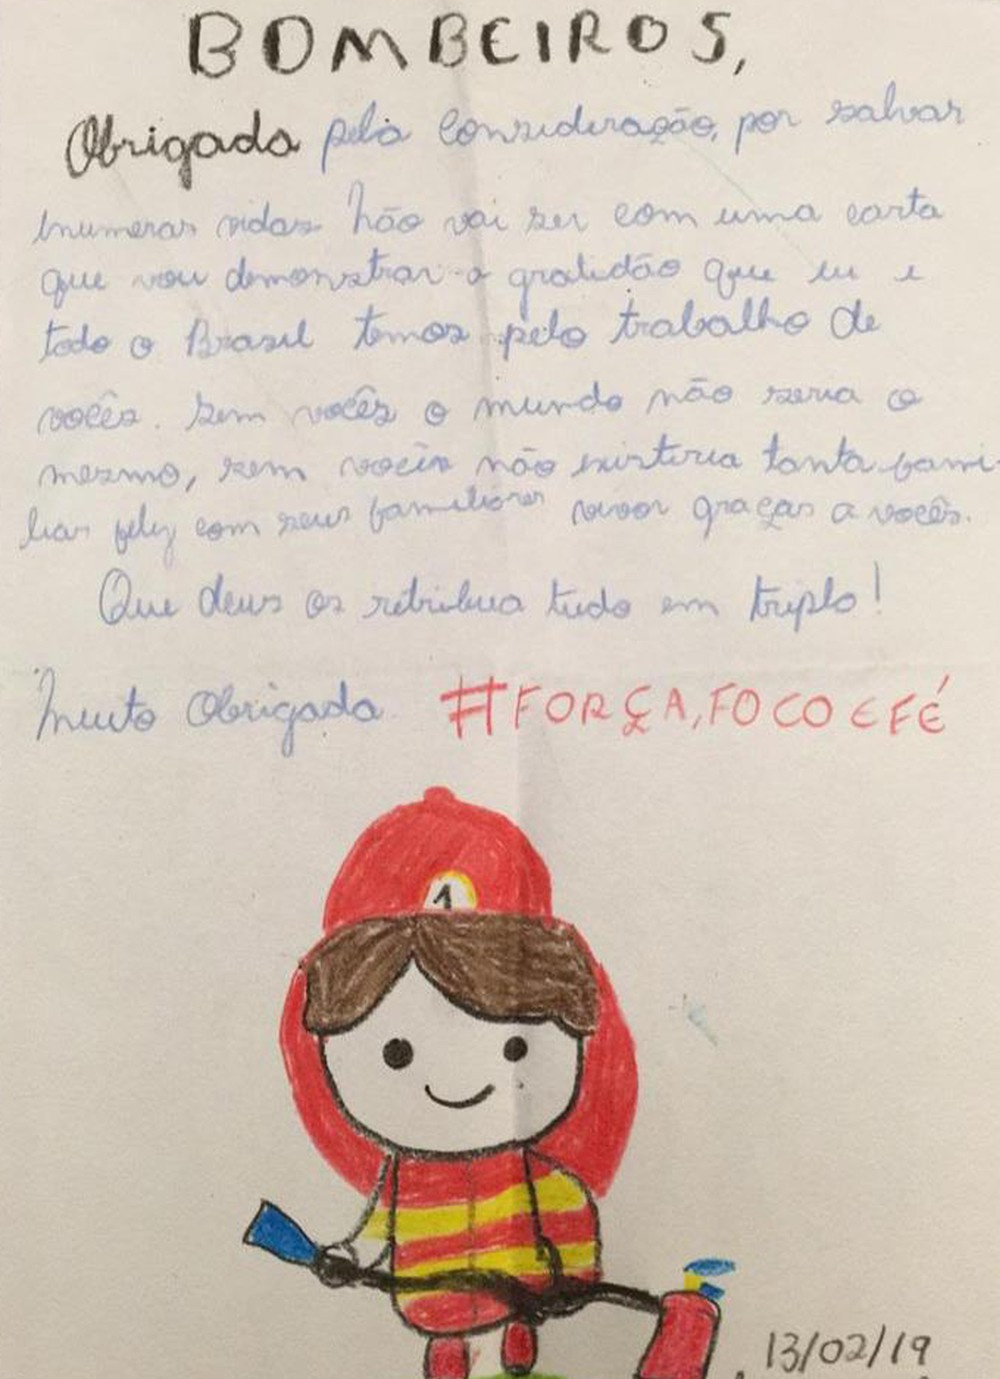 BOMBEIROS,
Obrigada pela consideração, por salvar
inumeras vidas não vai ser com uma carta
que vou demonstrar a gratidão que eu e
todo o Brasil temos pelo trabalho de
vocês. Sem vocês o mundo não seria o
mesmo, sem vocês não existiria tanta fami-
lias feliz com seus familiares vivos graças a vocês.
Que deus os retribua tudo em triplo!
Muito Obrigada. #FORÇA, FOCO E FÉ
1
13/02/19